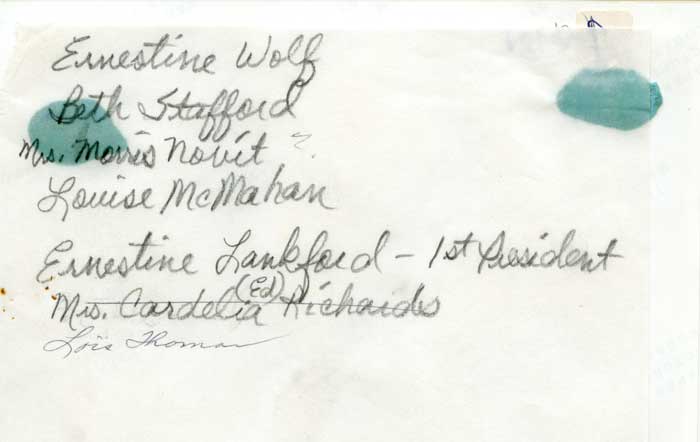 Ernestine Wolf
Beth Stafford
Mrs. Morris Novit ?
Louise McMahan
Ernestine Lankford - 1st President
Mrs. Cardelia (Ed) Richards
Lois Thomas